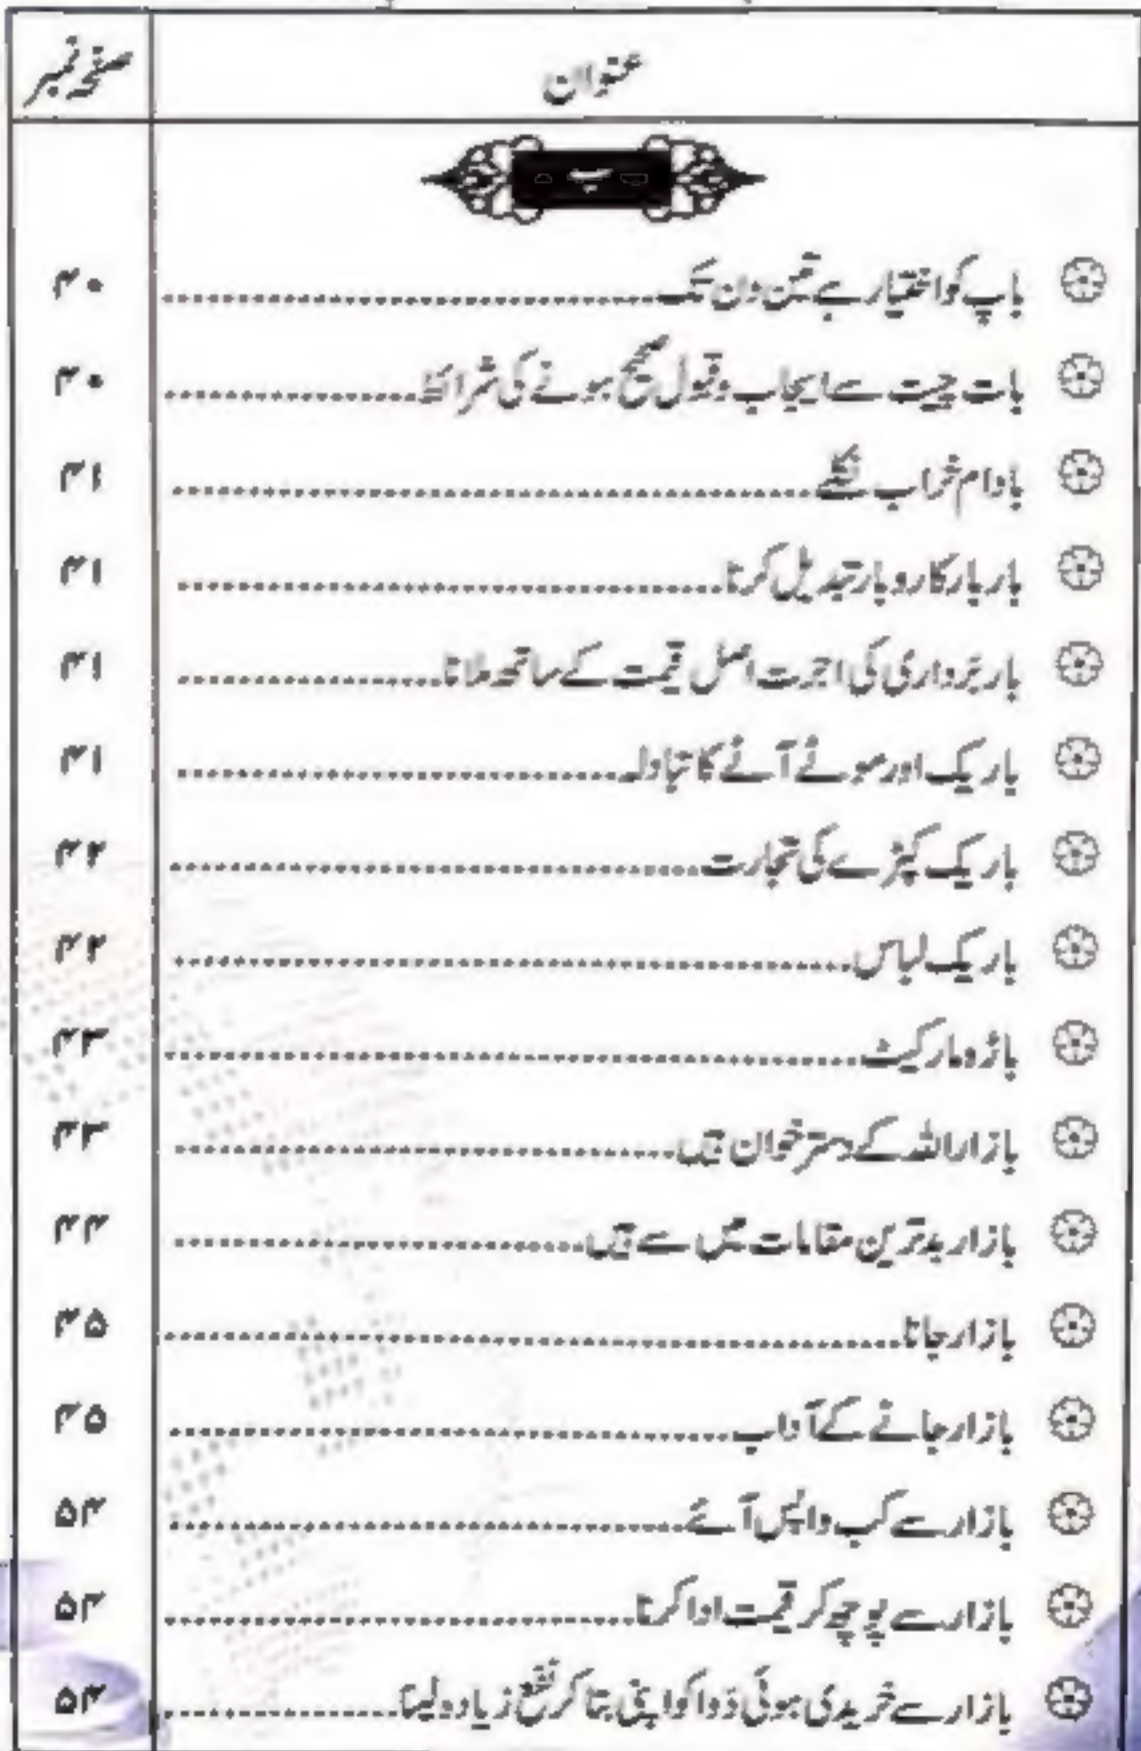 عنوان صفحہ نمبر
ب
باپ کو اختیار ہے تین دن تک ۴۰
بات چیت سے ایجاب وقبول صحیح ہونے کی شرائط ۴۰
بادام خراب نکلے ۴۱
بار بار کاروبار تبدیل کرنا ۴۱
بار برداری کی اجرت اصل قیمت کے ساتھ ملانا ۴۱
باریک اور موٹے آٹے کا تبادلہ ۴۱
باریک کپڑے کی تجارت ۴۲
باریک لباس ۴۲
باڑہ مارکیٹ ۴۳
بازار اللہ کے دسترخوان ہیں ۴۳
بازار بدترین مقامات میں سے ہیں ۴۴
بازار جانا ۴۵
بازار جانے کے آداب ۴۵
بازار سے کب واپس آئے ۵۴
بازار سے پوچھ کر قیمت ادا کرنا ۵۴
بازار سے خریدی ہوئی دَوا کو اپنی بتا کر نفع زیادہ لینا ۵۴